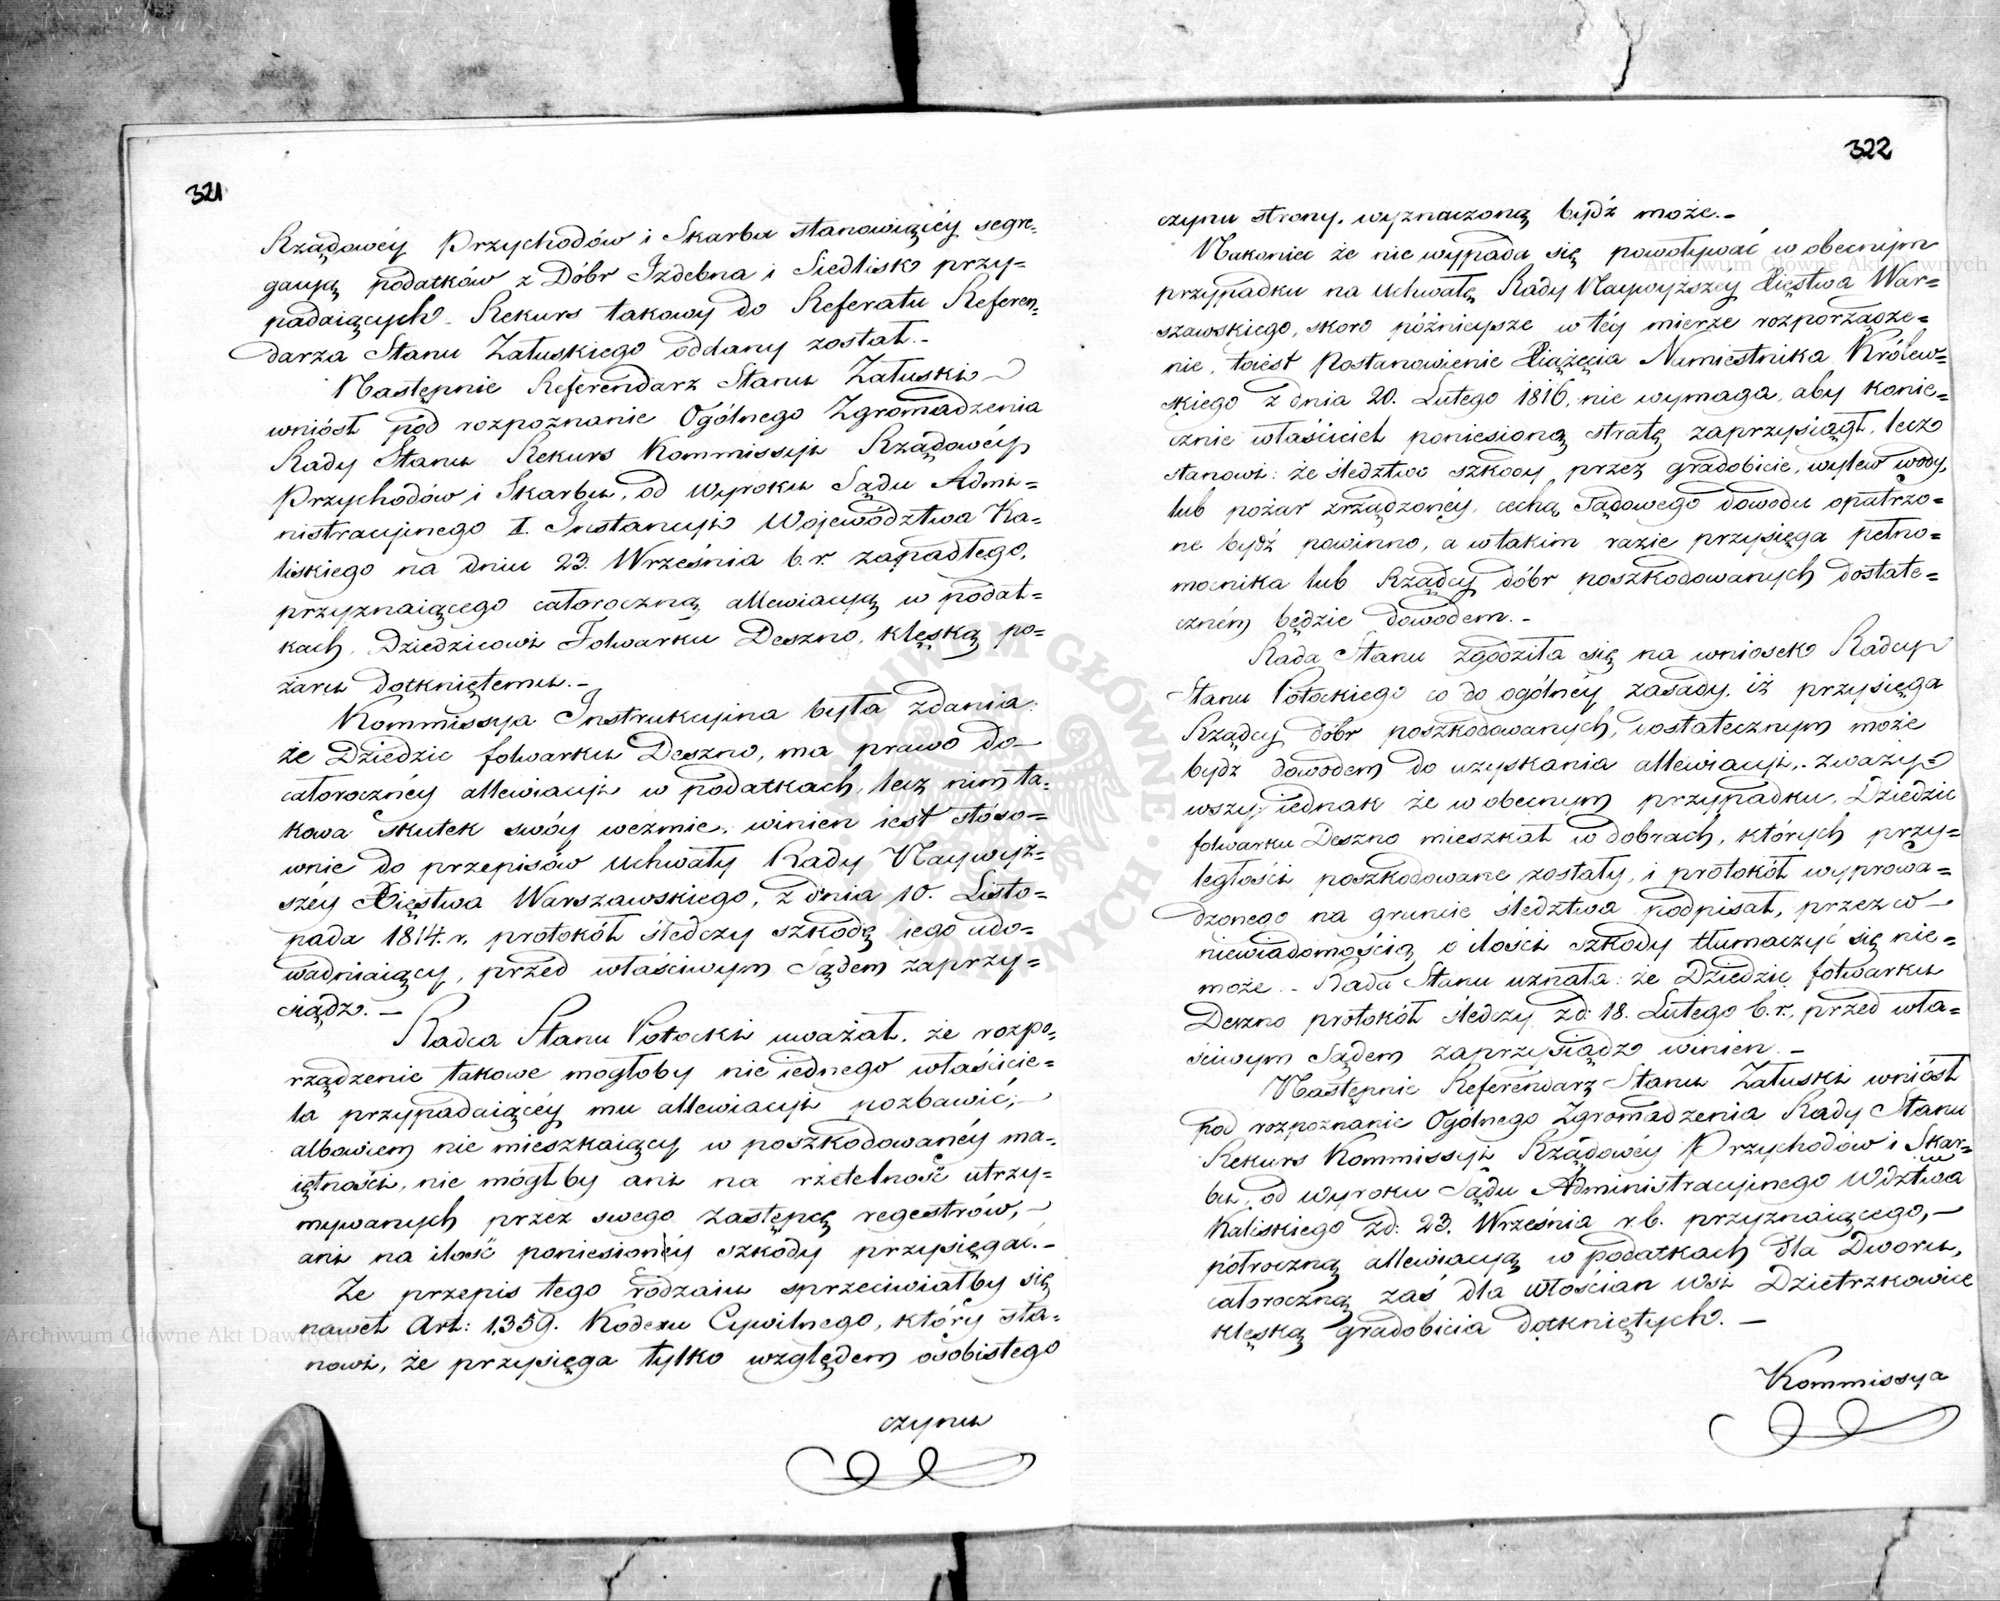 321
Rządowéy Przychodów i Skarbu stanowiącéy segre-
gacyą podatków z Dóbr Izdebna i Siedlisk przy-
padaiących. Rekurs takowy do Referatu Referen-
darza Stanu Załuskiego oddany został.-
Następnie Referendarz Stanu Załuski
wniósł pod rozpoznanie Ogólnego Zgromadzenia
Rady Stanu Rekurs Kommissyi Rządowéy
Przychodów i Skarbu, od Wyroku Sądu Admi-
nistracyjnego I. Instancyi Województwa Ka-
liskiego na dniu 23. Września b. r. zapadłego,
przyznaiącego całoroczną allewiacyą w podat-
kach, Dziedzicowi Folwarku Deszno, klęską po-
żaru dotkniętemu.-
Kommissya Instrukcyina była zdania:
że Dziedzic folwarku Deszno, ma prawo do
całorocznéy allewiacyi w podatkach, lecz nim ta-
kowa skutek swóy weźmie, winien iest stóso-
wnie do przepisów Uchwały Rady Naywyż-
széy Xięstwa Warszawskiego, z dnia 10. Listo-
pada 1814. r. protokół śledczy szkodę iego udo-
wadniaiący, przed właściwym Sądem zaprzy-
siądz.-
Radca Stanu Potocki uważał, że rozpo-
rządzenie takowe mogłoby nie iednego właścicie-
la przypadaiącéy mu allewiacyi pozbawić,
albowiem nie mieszkaiący w poszkodowanéy ma-
iętności, nie mógłby ani na rzetelność utrzy-
mywanych przez swego zastępcę regestrów,
ani na ilość poniesionéy szkody przysięgać.-
Że przepis tego rodzaiu sprzeciwiałby się
nawet Art: 1,359. Kodexu Cywilnego, który sta-
nowi, że przysięga tylko względem osobistego
czynu
322
czynu strony, wyznaczoną bydź może.-
Nakoniec że nie wypada się powoływać w obecnym
przypadku na Uchwałę Rady Naywyższey Xięstwa War-
szawskiego, skoro późnieysze w téy mierze rozporządze-
nie, toiest Postanowienie Xiążęcia Namiestnika Królew-
skiego z dnia 20. Lutego 1816, nie wymaga, aby konie-
cznie właściciel poniesioną stratę zaprzysiągł, lecz
stanowi: że śledztwo szkody przez gradobicie, wylew wody,
lub pożar zrządzonéy, cechą Sądowego dowodu opatrzo-
ne bydź powinno, a w takim razie przysięga pełno-
mocnika lub Rządcy dóbr poszkodowanych dostate-
czném będzie dowodem.-
Rada Stanu zgodziła się na wniosek Radcy
Stanu Potockiego co do ogólnéy zasady, iż przysięga
Rządcy dóbr poszkodowanych, dostatecznym może
bydź dowodem do uzyskania allewiacyi, zważy-
wszy iednak że w obecnym przypadku, Dziedzic
folwarku Deszno mieszkał w dobrach, których przy-
ległości poszkodowane zostały, i protokół wyprowa-
dzonego na gruncie śledztwa podpisał, przez co
niewiadomością o ilości szkody tłumaczyć się nie-
może.- Rada Stanu uznała: że Dziedzic folwarku
Deszno protokół śledczy zd: 18. Lutego b. r., przed wła-
ściwym Sądem zaprzysiądz winien.-
Następnie Referendarz Stanu Załuski wniósł
pod rozpoznanie Ogólnego Zgromadzenia Rady Stanu
Rekurs Kommissyi Rządowéy Przychodów i Skar-
bu, od wyroku Sądu Administracyinego Wdztwa
Kaliskiego zd: 23. Września r. b. przyznaiącego,
półroczną allewiacyą w podatkach dla Dworu,
całoroczną zaś dla włościan wsi Dzietrzkowice
klęską gradobicia dotkniętych.-
Kommissya
Archiwum Główne Akt Dawnych
Archiwum Główne Akt Dawnych
ARCHIWUM GŁÓWNE AKT DAWNYCH